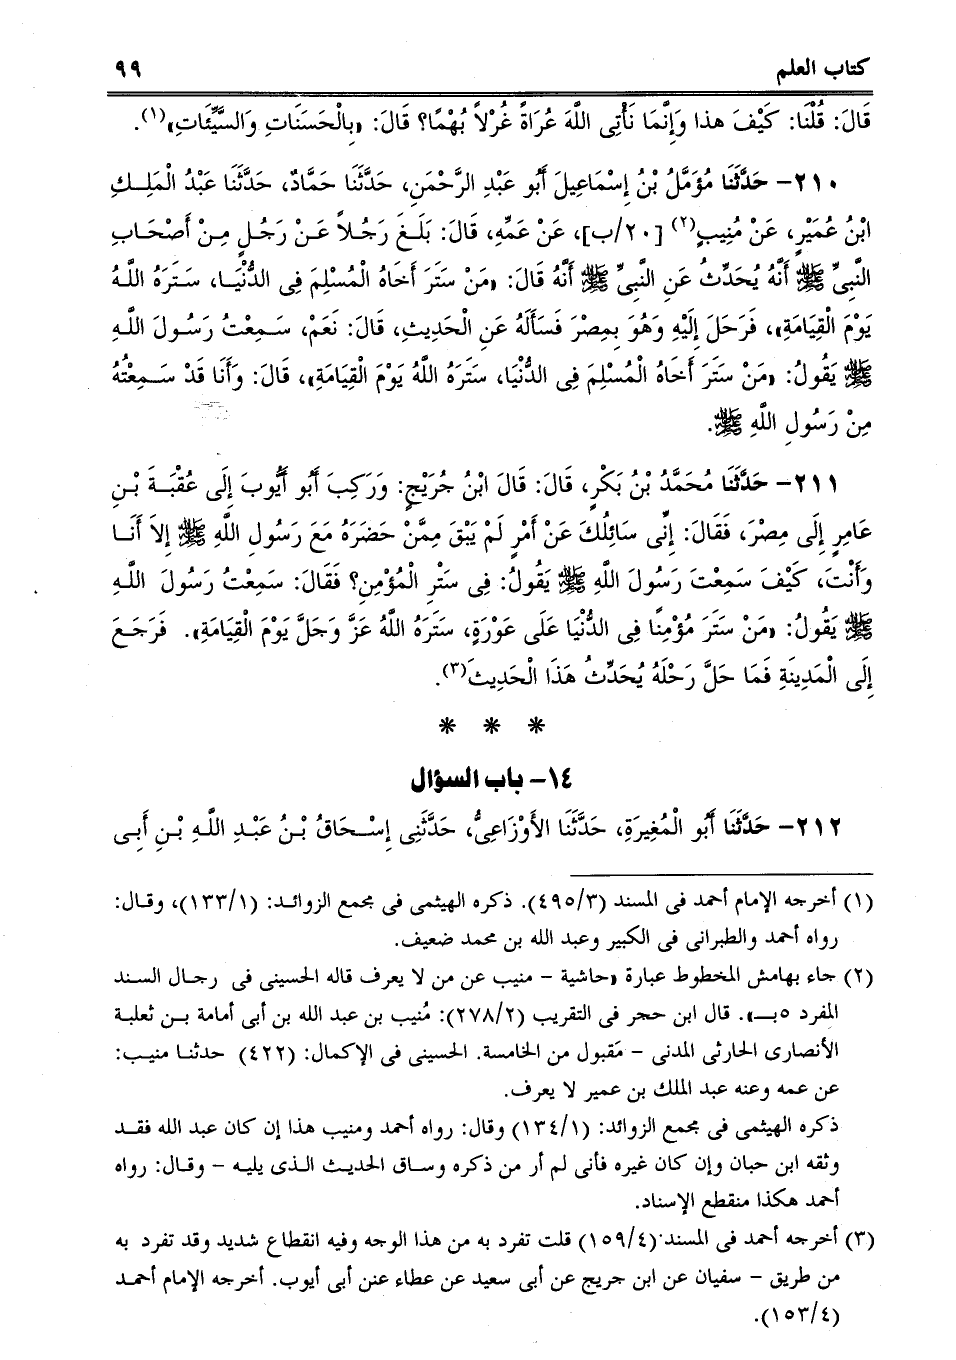 كتاب العلم ٩٩
قَالَ: قُلْنَا: كَيْفَ هذا وَإِنَّمَا نَأْتِى اللَّهَ عُرَاةً غُرْلاً بُهْمًا؟ قَالَ: «بِالْحَسَنَاتِ وَالسَّيِّئَاتِ»(١).
٢١٠- حَدَّثَنَا مُؤَمَّلُ بْنُ إِسْمَاعِيلَ أَبُو عَبْدِ الرَّحْمَنِ، حَدَّثَنَا حَمَّادٌ، حَدَّثَنَا عَبْدُ الْمَلِكِ
ابْنُ عُمَيْرٍ، عَنْ مُنِيبٍ(٢) [٢٠/ب]، عَنْ عَمِّهِ، قَالَ: بَلَغَ رَجُلاً عَنْ رَجُلٍ مِنْ أَصْحَابِ
النَّبِىِّ ﷺ أَنَّهُ يُحَدِّثُ عَنِ النَّبِىِّ ﷺ أَنَّهُ قَالَ: «مَنْ سَتَرَ أَخَاهُ الْمُسْلِمَ فِى الدُّنْيَا، سَتَرَهُ اللَّهُ
يَوْمَ الْقِيَامَةِ»، فَرَحَلَ إِلَيْهِ وَهُوَ بِمِصْرَ فَسَأَلَهُ عَنِ الْحَدِيثِ، قَالَ: نَعَمْ، سَمِعْتُ رَسُولَ اللَّهِ
ﷺ يَقُولُ: «مَنْ سَتَرَ أَخَاهُ الْمُسْلِمَ فِى الدُّنْيَا، سَتَرَهُ اللَّهُ يَوْمَ الْقِيَامَةِ»، قَالَ: وَأَنَا قَدْ سَمِعْتُهُ
مِنْ رَسُولِ اللَّهِ ﷺ.
٢١١- حَدَّثَنَا مُحَمَّدُ بْنُ بَكْرٍ، قَالَ: قَالَ ابْنُ جُرَيْجٍ: وَرَكِبَ أَبُو أَيُّوبَ إِلَى عُقْبَةَ بْنِ
عَامِرٍ إِلَى مِصْرَ، فَقَالَ: إِنِّى سَائِلُكَ عَنْ أَمْرٍ لَمْ يَبْقَ مِمَّنْ حَضَرَهُ مَعَ رَسُولِ اللَّهِ ﷺ إِلاَ أَنَا
وَأَنْتَ، كَيْفَ سَمِعْتَ رَسُولَ اللَّهِ ﷺ يَقُولُ: فِى سَتْرِ الْمُؤْمِنِ؟ فَقَالَ: سَمِعْتُ رَسُولَ اللَّهِ
ﷺ يَقُولُ: «مَنْ سَتَرَ مُؤْمِنًا فِى الدُّنْيَا عَلَى عَوْرَةٍ، سَتَرَهُ اللَّهُ عَزَّ وَجَلَّ يَوْمَ الْقِيَامَةِ». فَرَجَعَ
إِلَى الْمَدِينَةِ فَمَا حَلَّ رَحْلَهُ يُحَدِّثُ هَذَا الْحَدِيثَ(٣).
* * *
١٤- باب السؤال
٢١٢- حَدَّثَنَا أَبُو الْمُغِيرَةِ، حَدَّثَنَا الأَوْزَاعِىُّ، حَدَّثَنِى إِسْحَاقُ بْنُ عَبْدِ اللَّهِ بْنِ أَبِى
(١) أخرجه الإمام أحمد فى المسند (٤٩٥/٣). ذكره الهيثمى فى مجمع الزوائد: (١٣٣/١)، وقال:
رواه أحمد والطبرانى فى الكبير وعبد الله بن محمد ضعيف.
(٢) جاء بهامش المخطوط عبارة «حاشية - منيب عن من لا يعرف قاله الحسينى فى رجال السند
المفرد ٥بـ». قال ابن حجر فى التقريب (٢٧٨/٢): مُنيب بن عبد الله بن أبى أمامة بن ثعلبة
الأنصارى الحارثى المدنى - مَقبول من الخامسة. الحسينى فى الإكمال: (٤٢٢) حدثنا منيب:
عن عمه وعنه عبد الملك بن عمير لا يعرف.
ذكره الهيثمى فى مجمع الزوائد: (١٣٤/١) وقال: رواه أحمد ومنيب هذا إن كان عبد الله فقد
وثقه ابن حبان وإن كان غيره فأنى لم أر من ذكره وساق الحديث الذى يليه - وقال: رواه
أحمد هكذا منقطع الإسناد.
(٣) أخرجه أحمد فى المسند (١٥٩/٤) قلت تفرد به من هذا الوجه وفيه انقطاع شديد وقد تفرد به
من طريق - سفيان عن ابن جريج عن أبى سعيد عن عطاء عنن أبى أيوب. أخرجه الإمام أحمد
(١٥٣/٤).